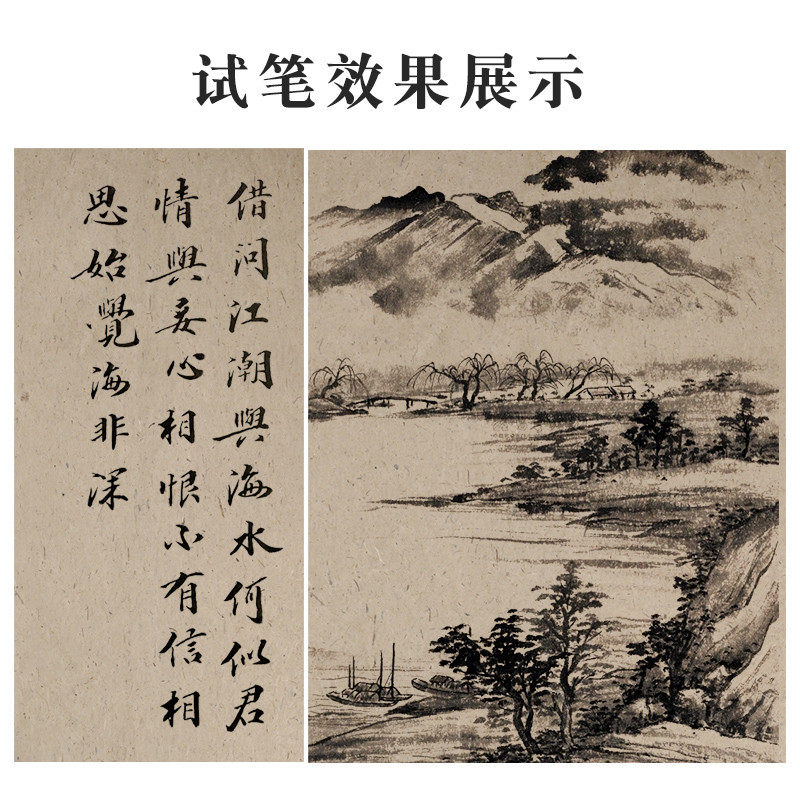 试笔效果展示
借问江潮與海水何似君
情與妾心相恨不有信相
思始覺海非深